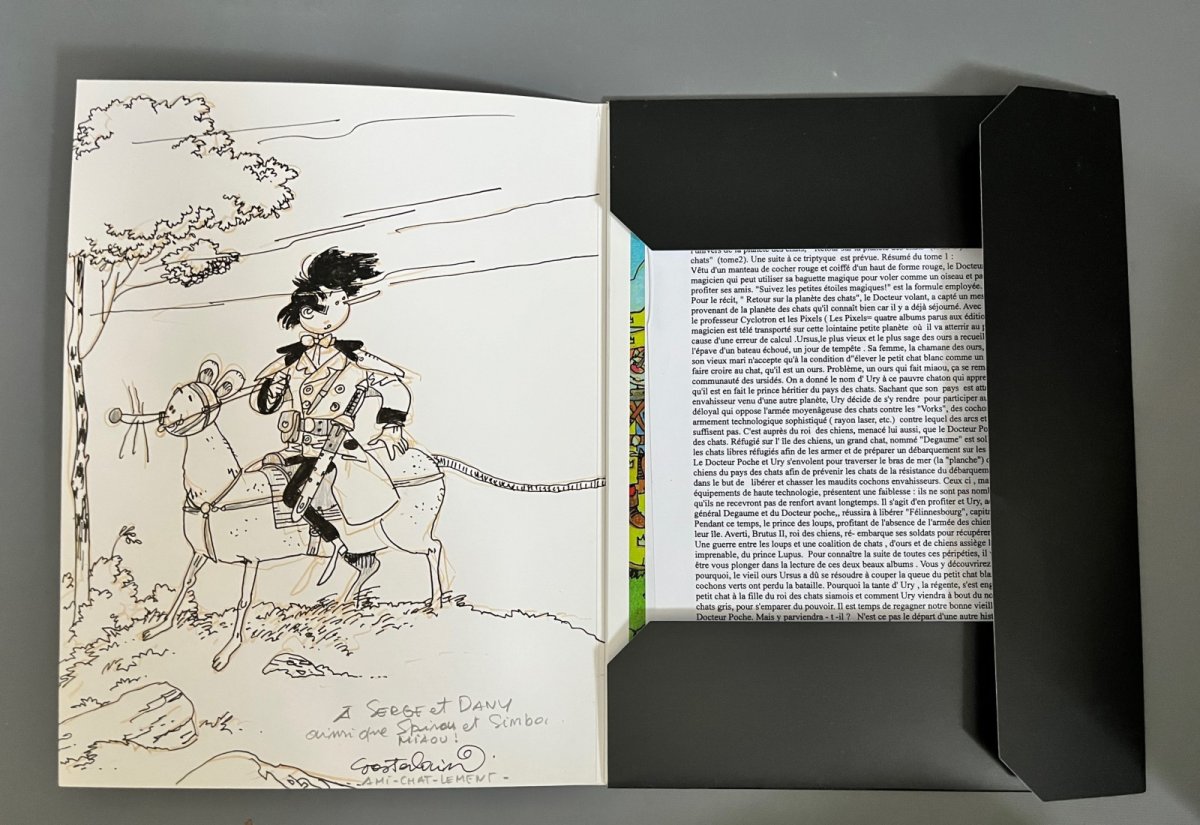 À SERGE et DANY
ainsi que Spirou et Simba
MIAOU!
-AMI-CHAT-LEMENT-
l'univers de la planète des chats, " Retour sur la planète des chats"
chats" (tome2). Une suite à ce triptyque est prévue. Résumé du tome 1 :
Vêtu d'un manteau de cocher rouge et coiffé d'un haut de forme rouge, le Docteur
magicien qui peut utiliser sa baguette magique pour voler comme un oiseau et
profiter ses amis. "Suivez les petites étoiles magiques!" est la formule employée.
Pour le récit, " Retour sur la planète des chats", le Docteur volant, a capté un
provenant de la planète des chats qu'il connaît bien car il y a déjà séjourné. Avec
le professeur Cyclotron et les Pixels ( Les Pixels= quatre albums parus aux
magicien est télé transporté sur cette lointaine petite planète où il va atterrir au
cause d'une erreur de calcul .Ursus,le plus vieux et le plus sage des ours a recueil
l'épave d'un bateau échoué, un jour de tempête . Sa femme, la chamane des ours,
son vieux mari n'accepte qu'à la condition d"élever le petit chat blanc comme un
faire croire au chat, qu'il est un ours. Problème, un ours qui fait miaou, ça se
communauté des ursidés. On a donné le nom d' Ury à ce pauvre chaton qui
qu'il est en fait le prince héritier du pays des chats. Sachant que son pays est
envahisseur venu d'une autre planète, Ury décide de s'y rendre pour participer
déloyal qui oppose l'armée moyenâgeuse des chats contre les "Vorks", des
armement technologique sophistiqué ( rayon laser, etc.) contre lequel des arcs et
suffisent pas. C'est auprès du roi des chiens, menacé lui aussi, que le Docteur
des chats. Réfugié sur l' île des chiens, un grand chat, nommé "Degaume" est
les chats libres réfugiés afin de les armer et de préparer un débarquement sur les
Le Docteur Poche et Ury s'envolent pour traverser le bras de mer (la "planche")
chiens du pays des chats afin de prévenir les chats de la résistance du
dans le but de libérer et chasser les maudits cochons envahisseurs. Ceux ci ,
équipements de haute technologie, présentent une faiblesse : ils ne sont pas
qu'ils ne recevront pas de renfort avant longtemps. Il s'agit d'en profiter et Ury,
général Degaume et du Docteur poche,, réussira à libérer "Félinnesbourg",
Pendant ce temps, le prince des loups, profitant de l'absence de l'armée des
leur île. Averti, Brutus II, roi des chiens, ré- embarque ses soldats pour
Une guerre entre les loups et une coalition de chats , d'ours et de chiens assiège
imprenable, du prince Lupus. Pour connaître la suite de toutes ces péripéties, il
être vous plonger dans la lecture de ces deux beaux albums . Vous y découvrirez
pourquoi, le vieil ours Ursus a dû se résoudre à couper la queue du petit chat
cochons verts ont perdu la bataille. Pourquoi la tante d' Ury , la régente, s'est
petit chat à la fille du roi des chats siamois et comment Ury viendra à bout du
chats gris, pour s'emparer du pouvoir. Il est temps de regagner notre bonne
Docteur Poche. Mais y parviendra - t -il ? N'est ce pas le départ d'une autre